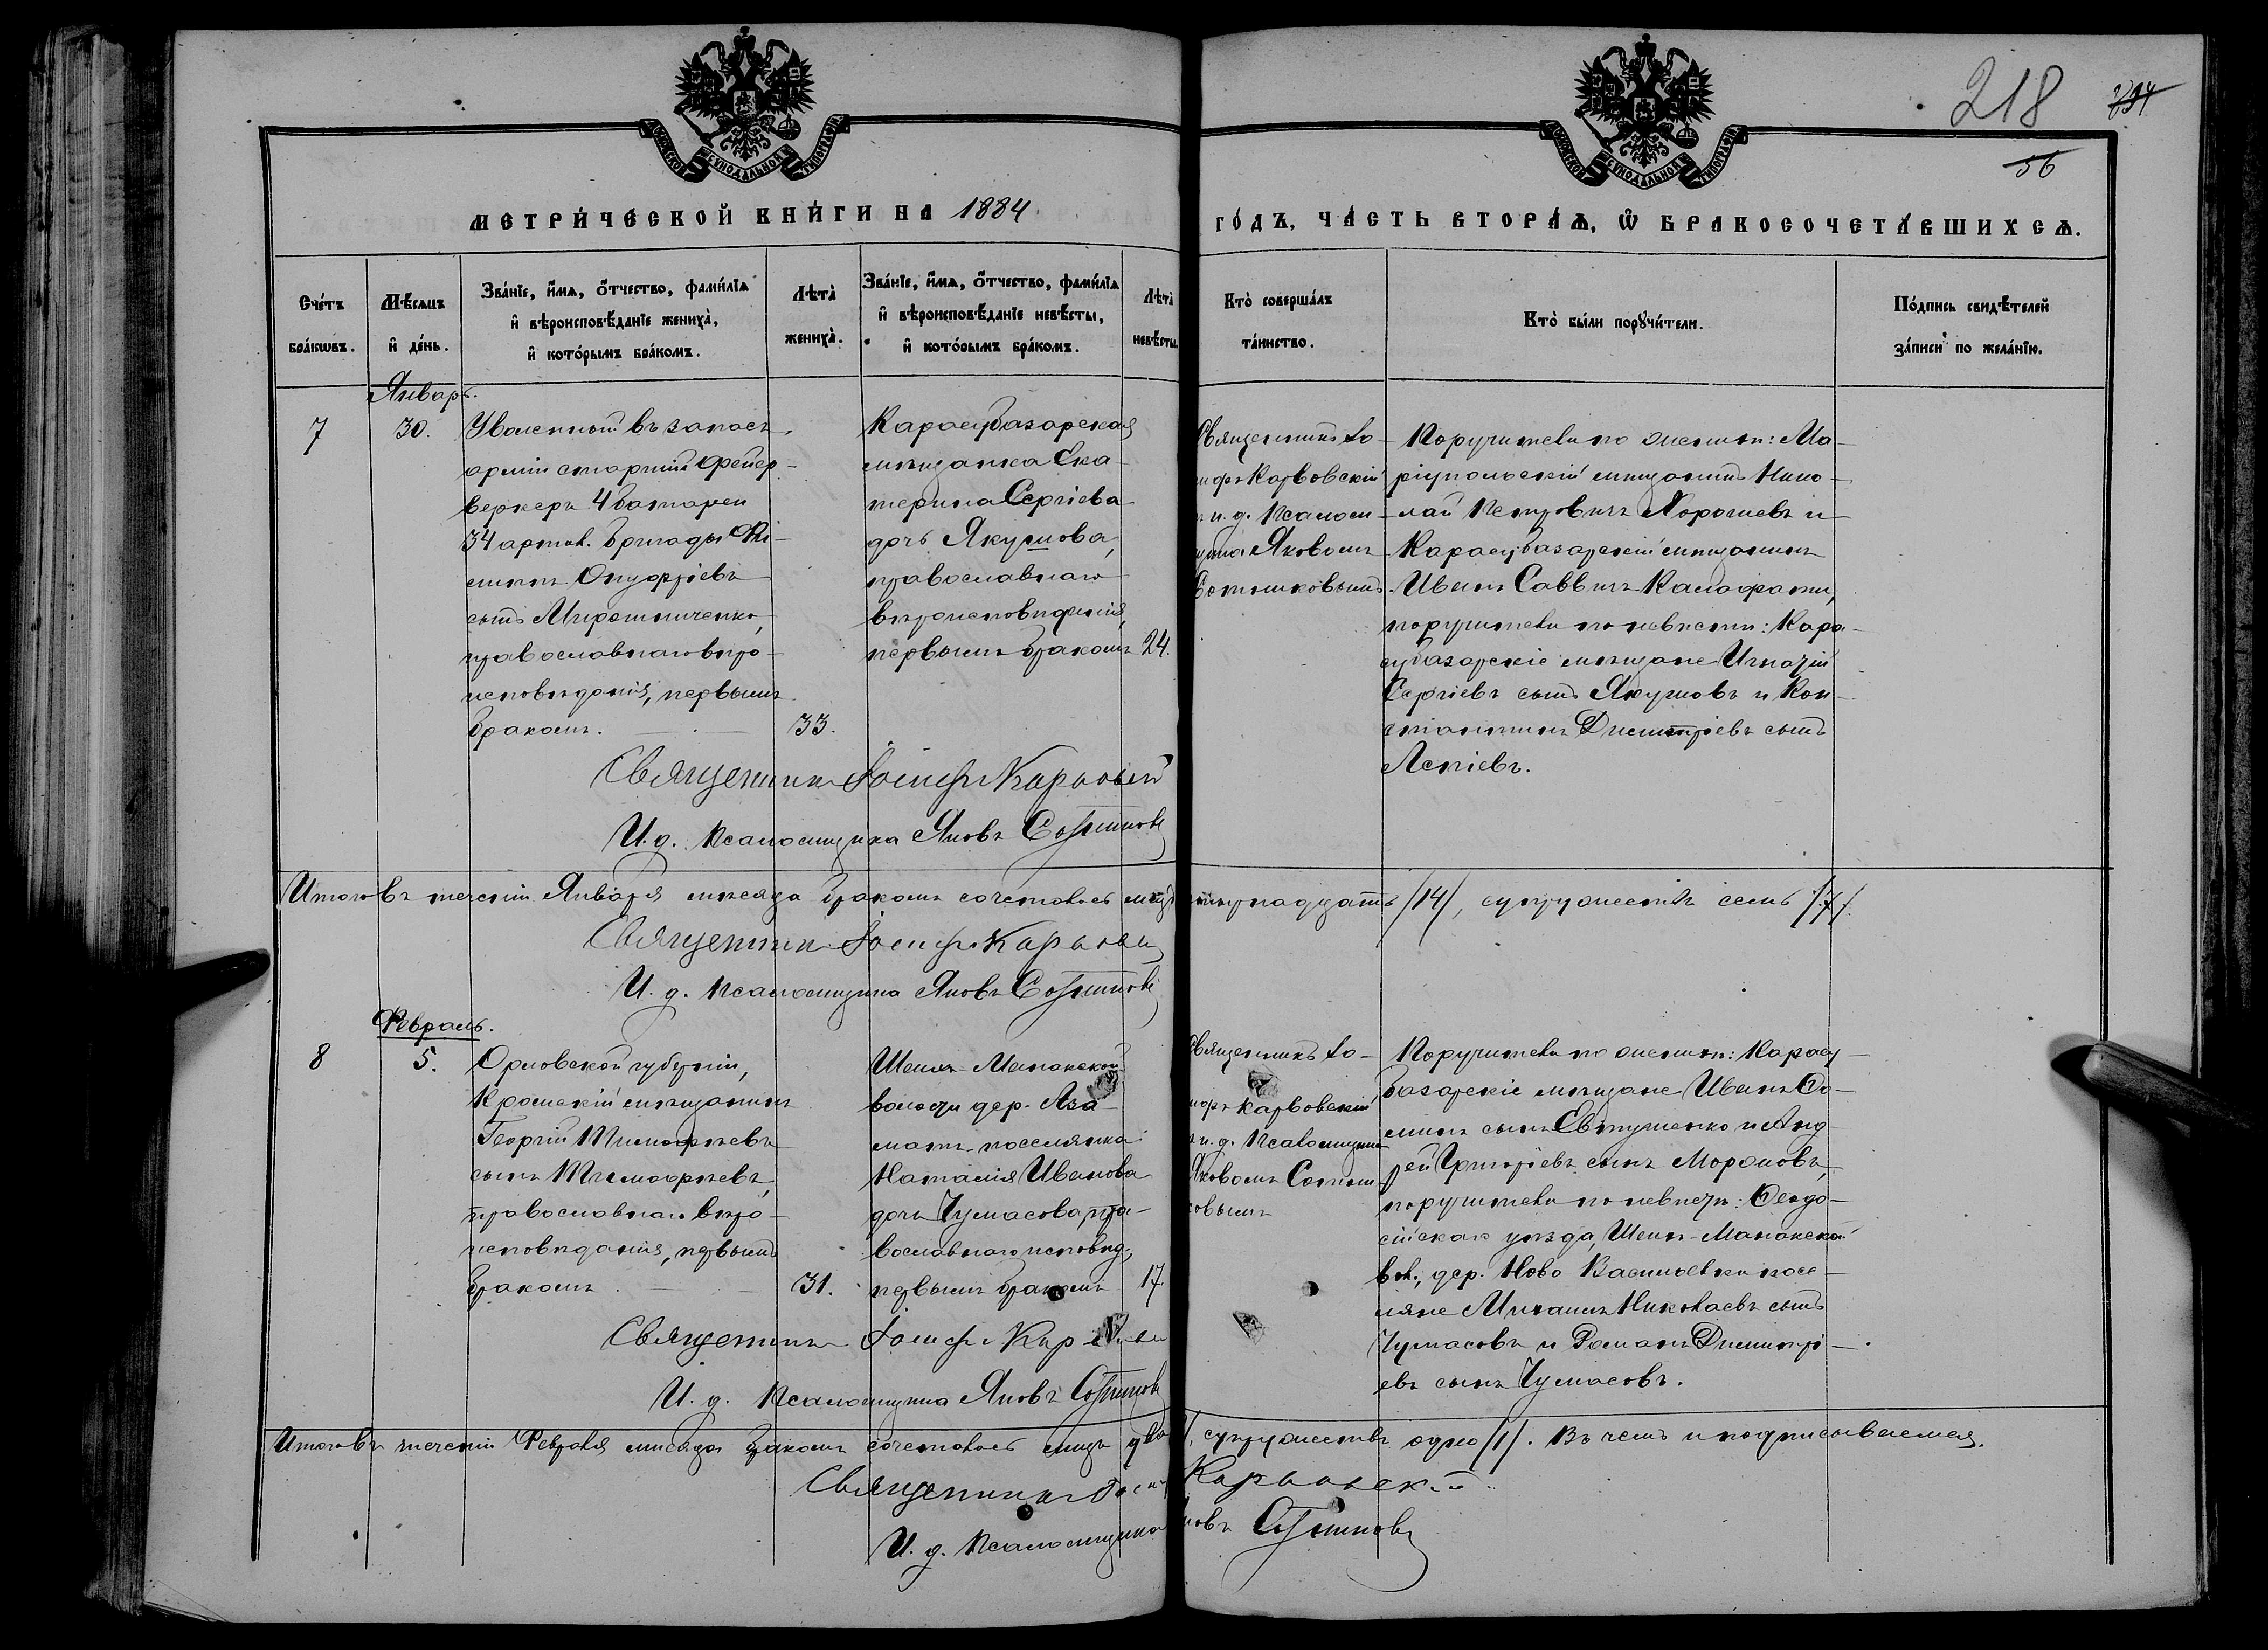 218
234
56
МОСКОВСКОЙ СѴНОДАЛЬНОЙ ТИПОГРАФІИ
МОСКОВСКОЙ СѴНОДАЛЬНОЙ ТИПОГРАФІИ
МЕТРИ́ЧЕСКОЙ КНИ́ГИ НА 1884
ГО́ДЪ, ЧА́СТЬ ВТОРА́Ѧ, Ѽ БРАКОСОЧЕТА́ВШИХСѦ.
Сче́тъ
бра́кѡвъ.
Мѣ́сяцъ
и де́нь.
Зва́нїе, и́мѧ, ѻ́тчество, фами́лїѧ
и вѣроисповѣ́данїе жениха̀,
и кото́рымъ бра́комъ.
Лѣта̀
жениха̀.
Зва́нїе, и́мѧ, ѻ́тчество, фами́лїѧ
и вѣроисповѣ́данїе невѣ́сты,
и кото́рымъ бра́комъ.
Лѣта̀
невѣ́сты.
Кто̀ соверша́лъ
та́инство.
Кто̀ бы́ли порꙋчи́тели.
По́дпись свидѣ́телей
за́писи по жела́нїю.
Январь.
7
30.
Уволенный въ запасъ
арміи старшій Фейер-
веркеръ 4 батареи
34 артил. бригады Фи-
липпъ Онуфріевъ
сынъ Мирошниченко,
православнаго вѣро-
исповѣданія, первымъ
бракомъ.
33.
Карасубазарская
мѣщанка Ека-
терина Сергіева
дочь Якушова,
православнаго
вѣроисповѣданія,
первымъ бракомъ
24.
Священникъ Іо-
сифъ Карвовскій
и. д. Псалом-
щика Яковомъ
Сотниковымъ
Поручители по женихѣ: Ма-
ріупольскій мѣщанинъ Нико-
лай Петровичъ Хорошевъ и
Карасубазарскій мѣщанинъ
Иванъ Саввичъ Калафати,
поручители по невѣстѣ: Кара-
субазарскіе мѣщане Игнатій
Сергіевъ сынъ Якушовъ и Кон-
стантинъ Дмитріевъ сынъ
Ластіевъ.
Священникъ Іосифъ Карвовскій
И. д. Псаломщика Яковъ Сотниковъ
Итого въ теченіи Января мѣсяца бракомъ сочеталось лицъ четырнадцать /14/, супружествъ семь /7/.
Священникъ Іосифъ Карвовскій
И. д. Псаломщика Яковъ Сотниковъ
Февраль.
8
5.
Орловской губерніи,
Кромскій мѣщанинъ
Георгій Тимофѣевъ
сынъ Тимофѣевъ,
православнаго вѣро-
исповѣданія, первымъ
бракомъ.
31.
Шеихъ-Манакской
волости дер. Аза-
матъ поселянка
Наталія Иванова
дочь Чумасова, пра-
вославнаго исповѣд.,
первымъ бракомъ
17.
Священникъ Іо-
сифъ Карвовскій
и. д. Псаломщика
Яковомъ Сотни-
ковымъ
Поручители по женихѣ: Карасу-
базарскіе мѣщане Иванъ Ѳо-
минъ сынъ Евтушенко и Анд-
рей Григоріевъ сынъ Морозовъ,
поручители по невѣстѣ: Ѳеодо-
сійскаго уѣзда, Шеихъ-Манакской
вол., дер. Ново Васильевки посе-
ляне Михаилъ Николаевъ сынъ
Чумасовъ и Романъ Дмитрі-
евъ сынъ Чумасовъ.
Священникъ Іосифъ Карвовскій
И. д. Псаломщика Яковъ Сотниковъ
Итого въ теченіи Февраля мѣсяца бракомъ сочеталось лицъ два, супружествъ одно /1/. Въ чемъ и подписываемся.
Священникъ Іосифъ Карвовскій
И. д. Псаломщика Яковъ Сотниковъ